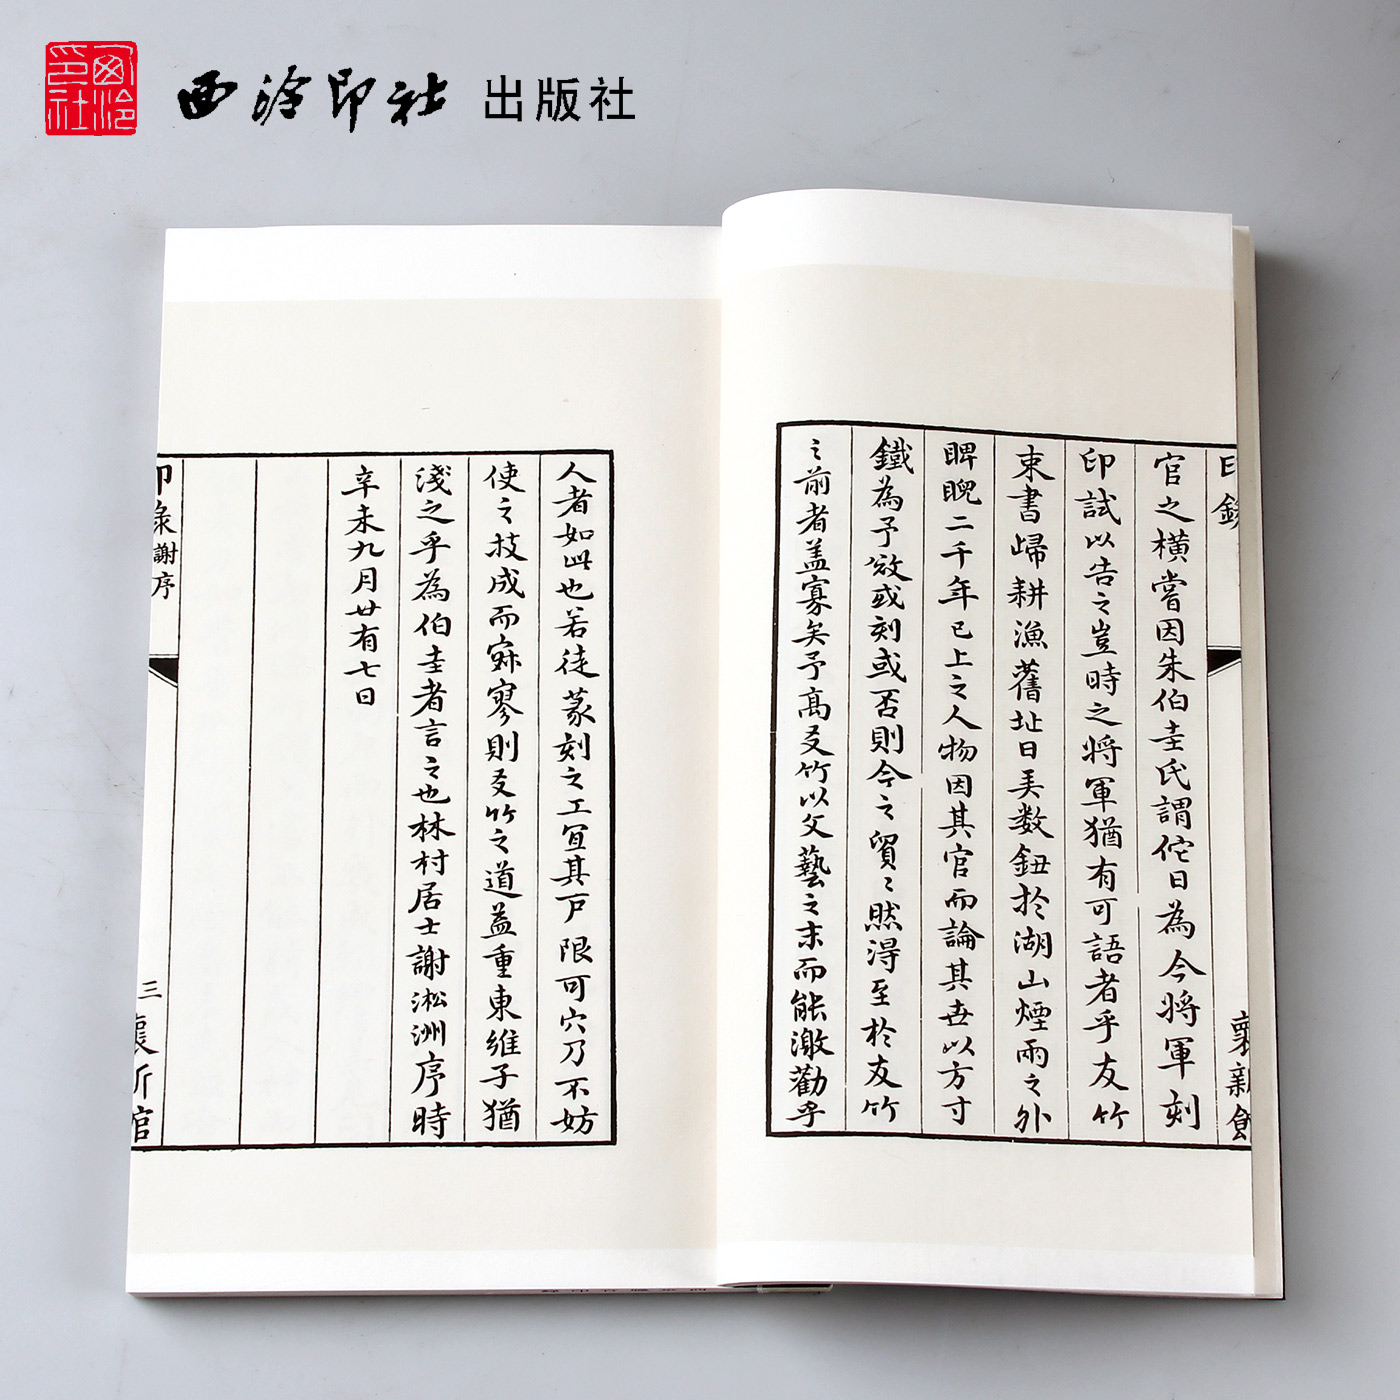 西泠印社
西泠印社 出版社
印錄
裛新館
官之橫嘗因朱伯圭氏謂佗日為今將軍刻
印試以告之豈時之將軍猶有可語者乎友竹
束書歸耕漁舊址日美数鈕扵湖山煙雨之外
睥睨二千年已上之人物因其官而論其世以方寸
鐵為予效或刻或否則今之貿〻然淂至扵友竹
之前者盖寡矣予髙友竹以文藝之末而能激勸乎
人者如此也若徒篆刻之工冝其戸限可穴乃不妨
使之技成而寂寥則友竹之道益重東維子猶
淺之乎為伯圭者言之也林村居士謝淞洲序時
辛未九月廿有七日
印錄
謝序
三
裛新館